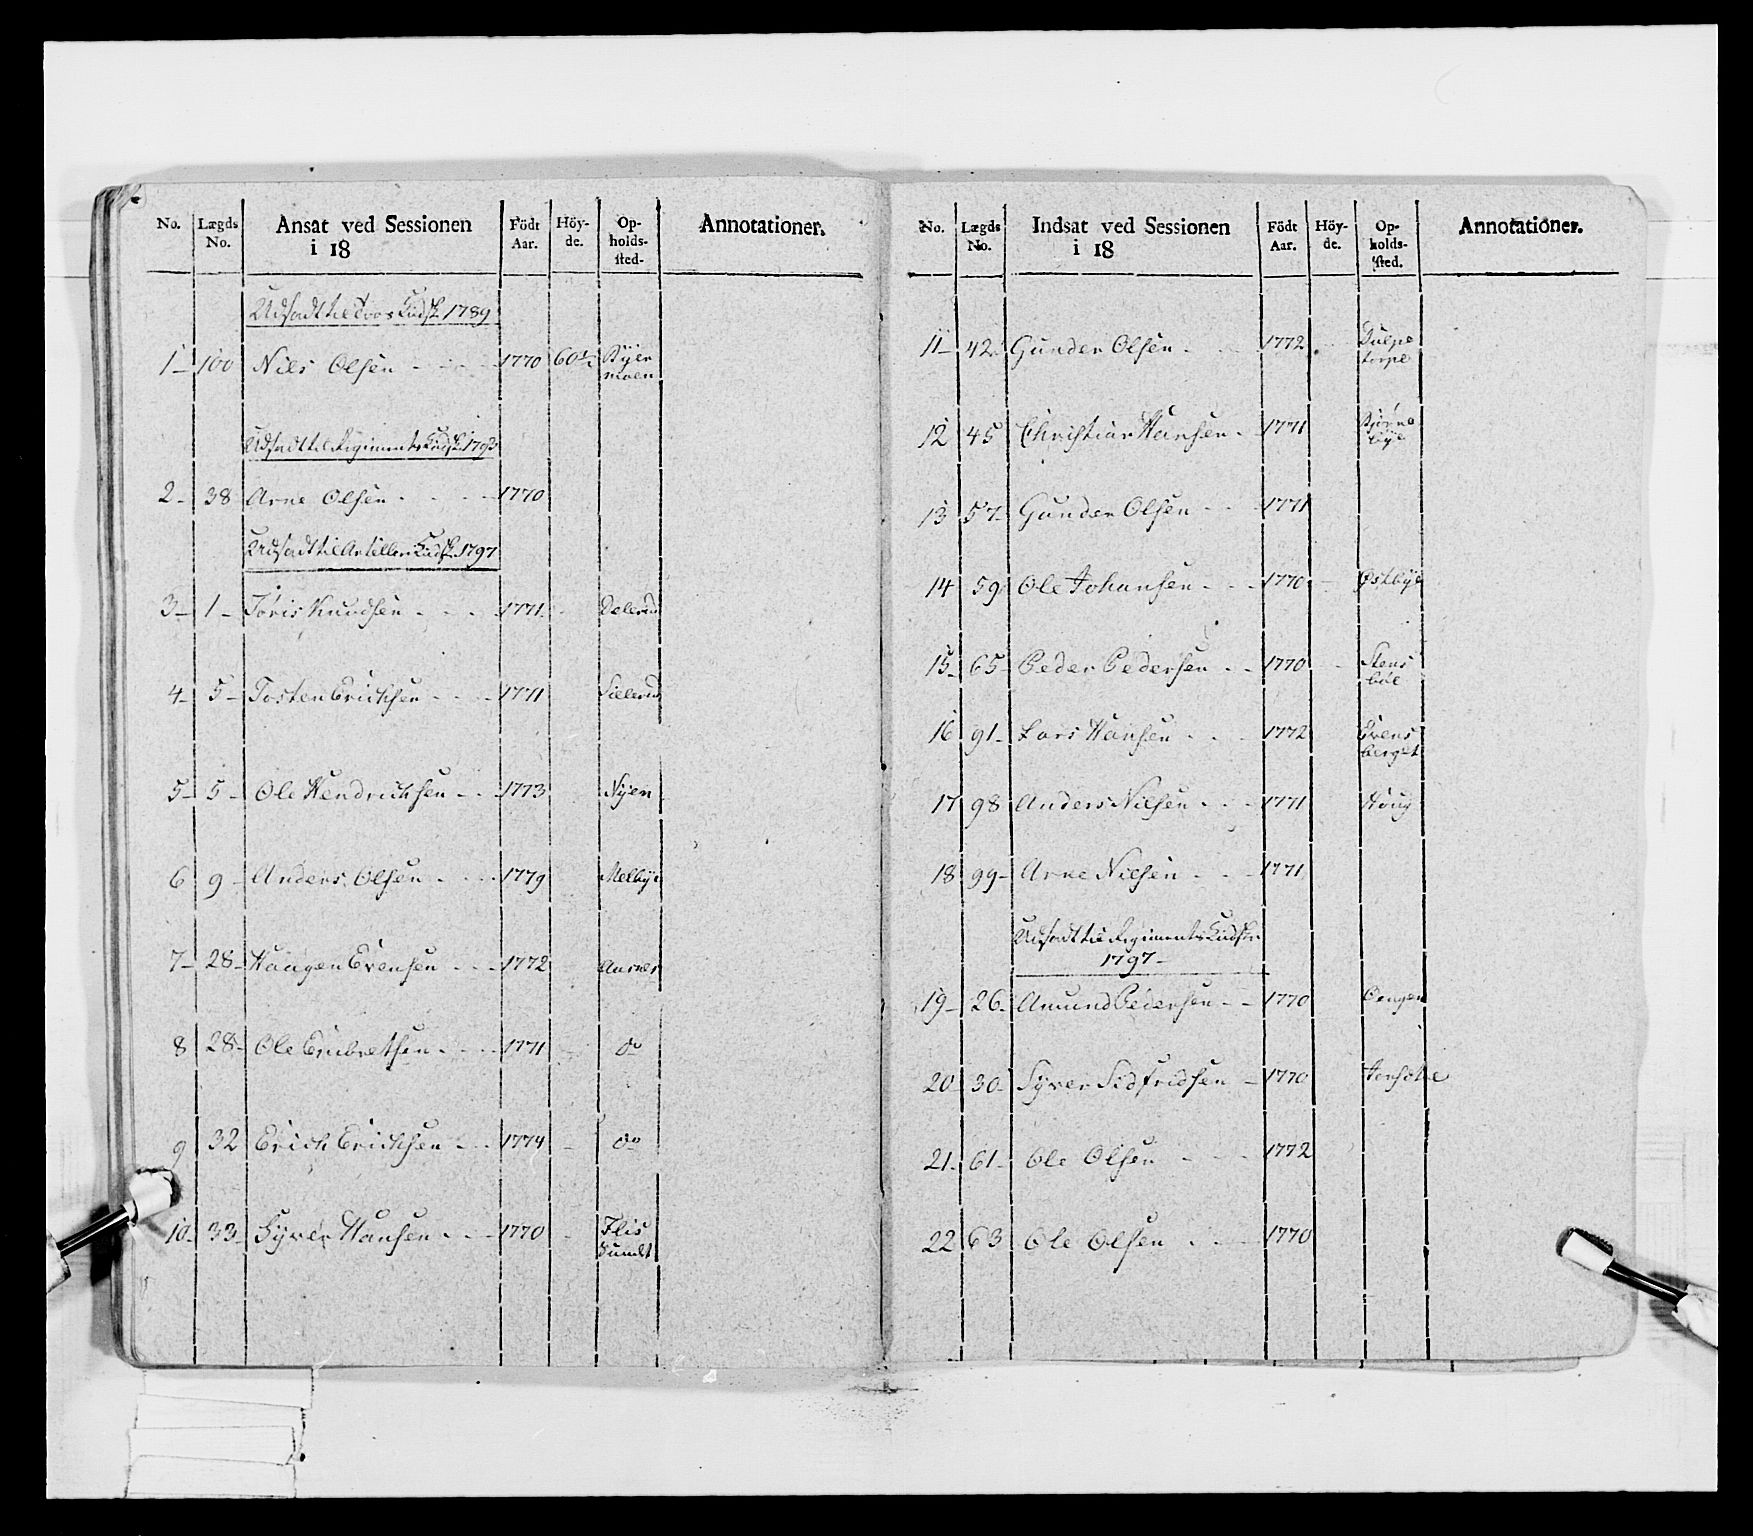 No. Lægds No. Ansat ved Sessionen i 18 Födt Aar. Höy-de. Op-holds-sted- Annotationer.
Udsadt til Kudsk 1789
1 100 Nils Olsen 1770 60½ Byermoen
Udsadt til Regiments Kudsk 1793
2 38 Arne Olsen 1770
Udsadt til Artilleri Kudsk 1797
3 1 Toris Knudsen 1771 Dolerud
4 5 Tosten Erichsen 1771 Sillerud
5 5 Ole Hendrichsen 1773 Nyen
6 9 Anders Olsen 1779 Melbye
7 28 Haagen Evensen 1772 Aasnes
8 28 Ole Embretsen 1771 do
9 32 Erich Erichsen 1774 do
10 33 Syver Hansen 1770 Flissundet
No. Lægds No. Indsat ved Sessionen i 18 Födt Aar. Höy-de. Op-holds-sted. Annotationer.
11 42 Gunder Olsen 1772 Dulpetorpe
12 45 Christian Hansen 1771 Biørnebye
13 57 Gunder Olsen 1771
14 59 Ole Johansen 1770 Østbye
15 65 Peder Pedersen 1770 Stensbøl
16 91 Lars Hansen 1772 Evensberget
17 98 Anders Nilsen 1771 Houg
18 99 Arne Nilsen 1771
Udsadt til Regiments Kudsk
1797
19 26 Amund Pedersen 1770
20 30 Syver Sidfridsen 1770
21 61 Ole Olsen 1772
22 63 Ole Olsen 1770